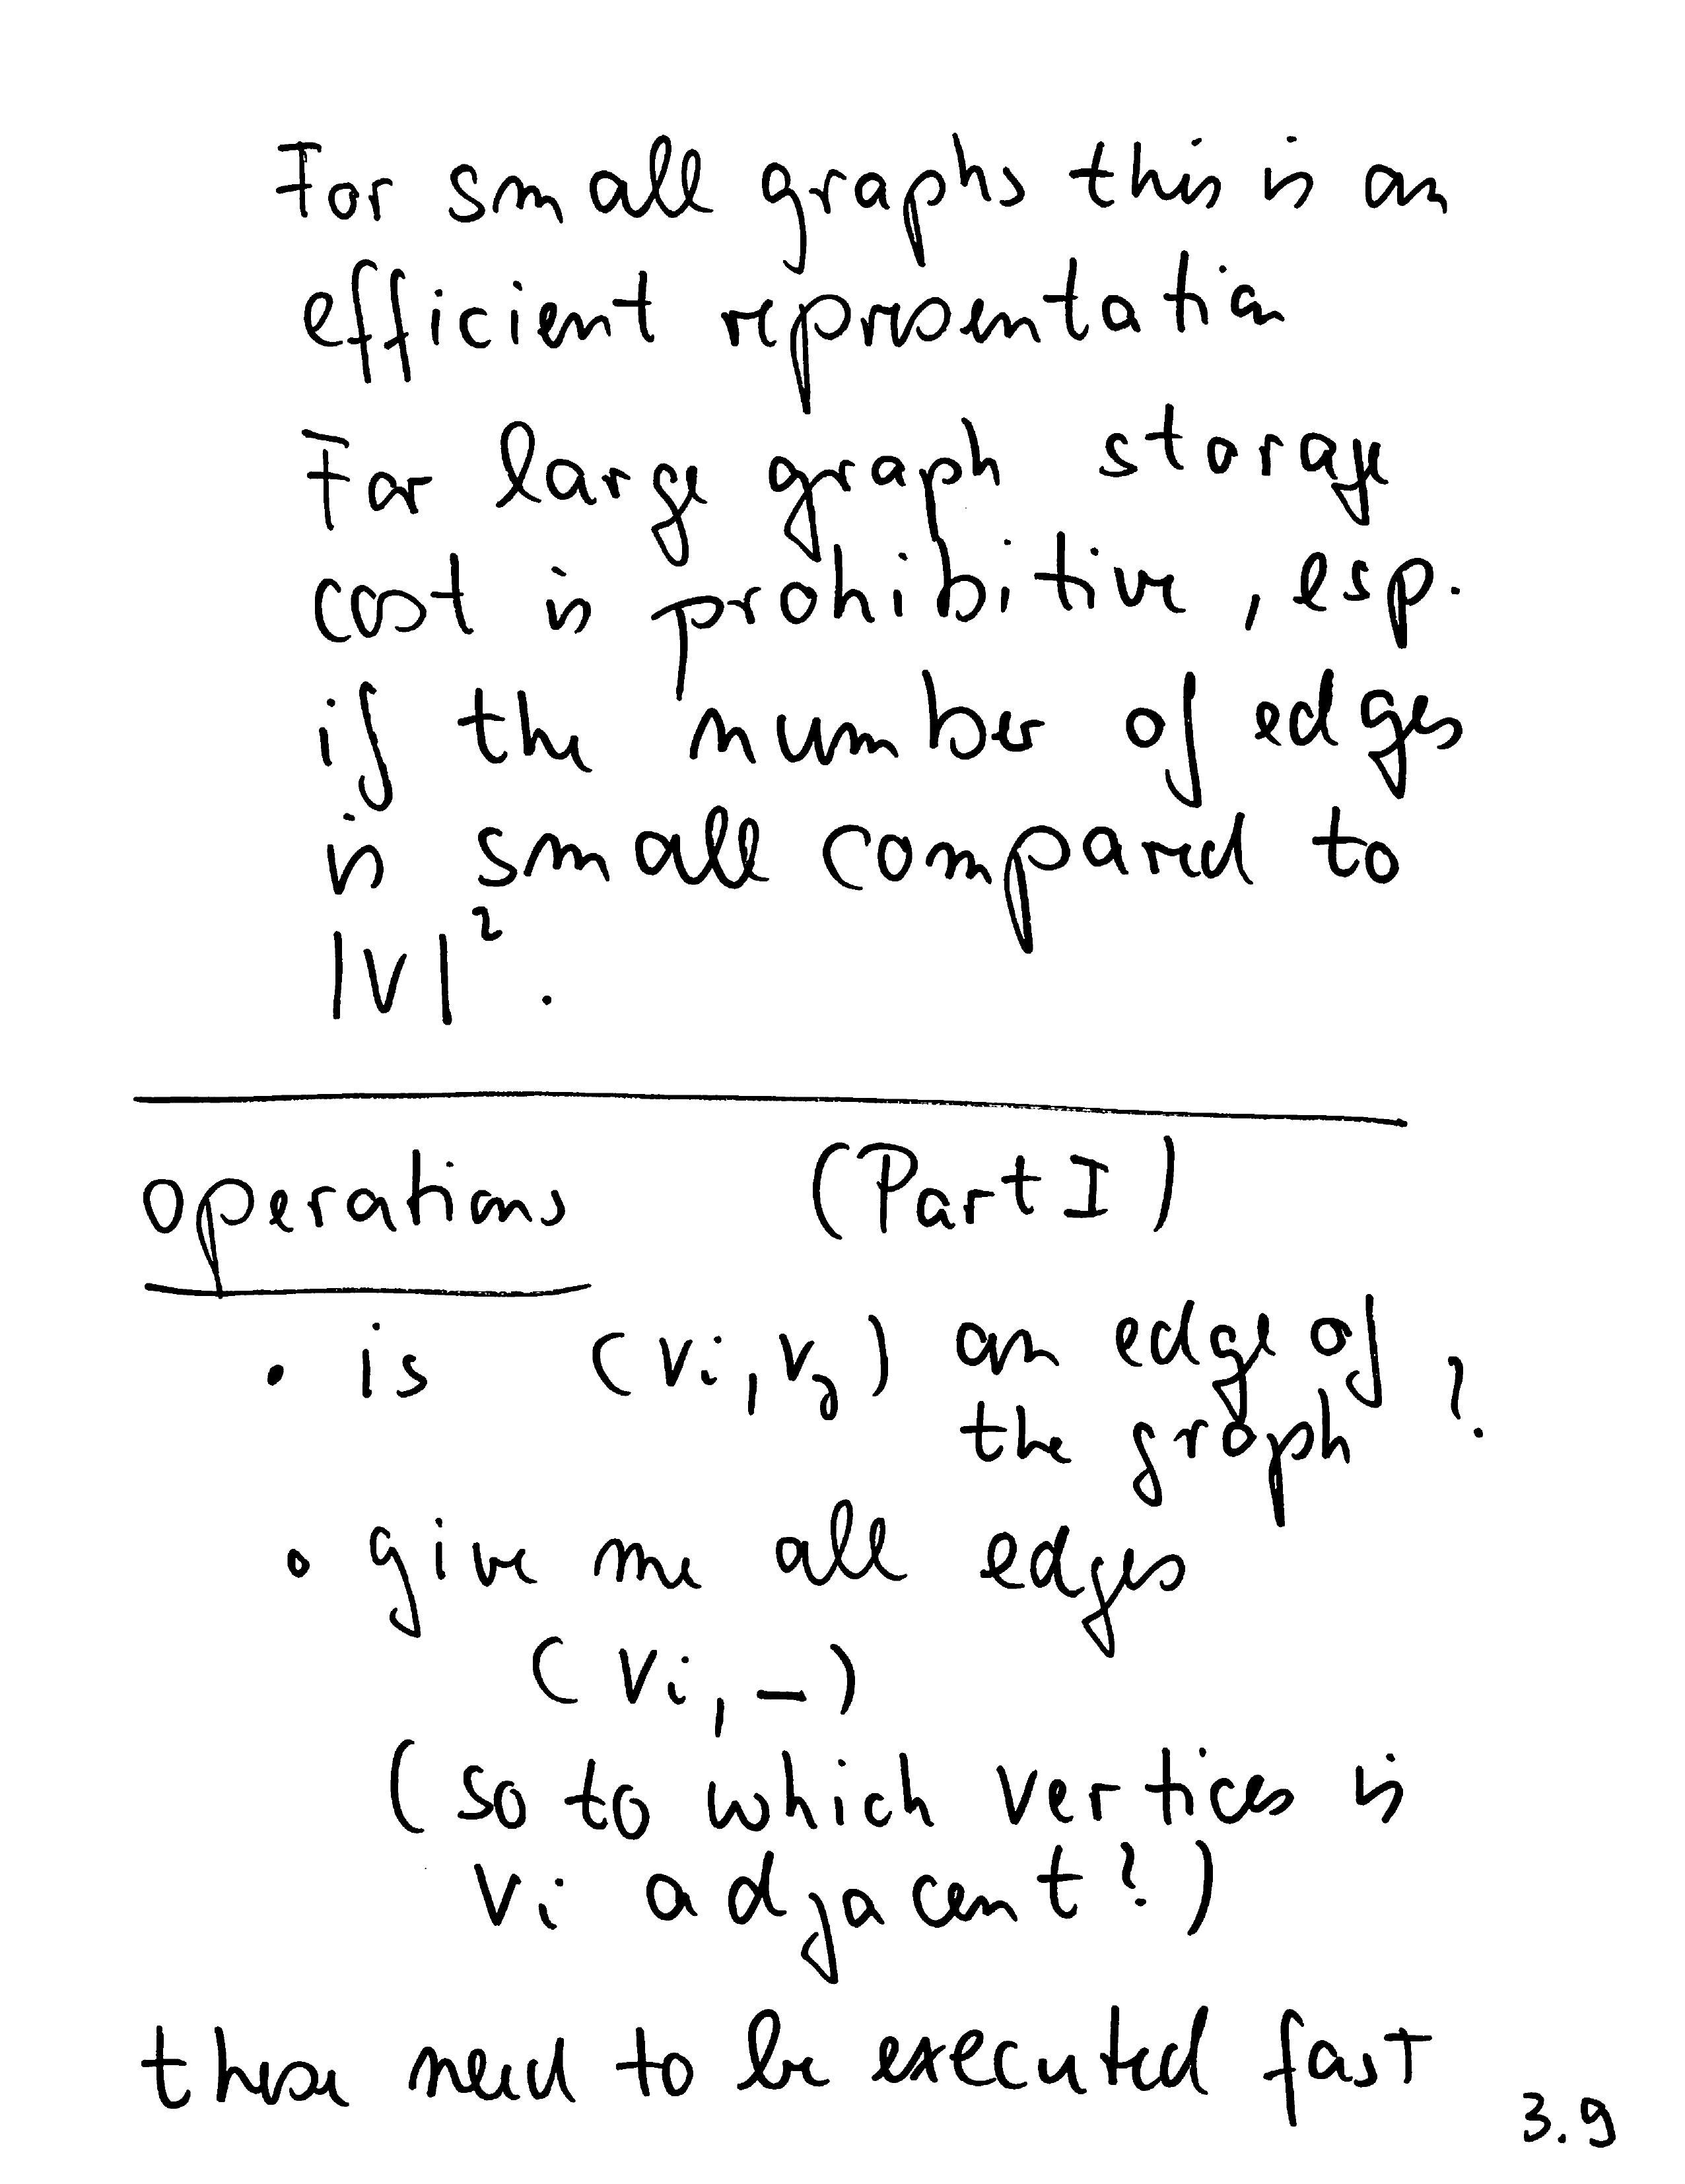 For small graphs this is an
efficient representation
For large graph storage
cost is prohibitive, esp.
if the number of edges
is small compared to
|V|².
operations (Part I)
• is (vi, vj) an edge of
the graph?
• give me all edges
(vi, –)
(so to which vertices is
vi adjacent?)
these need to be executed fast
3.9